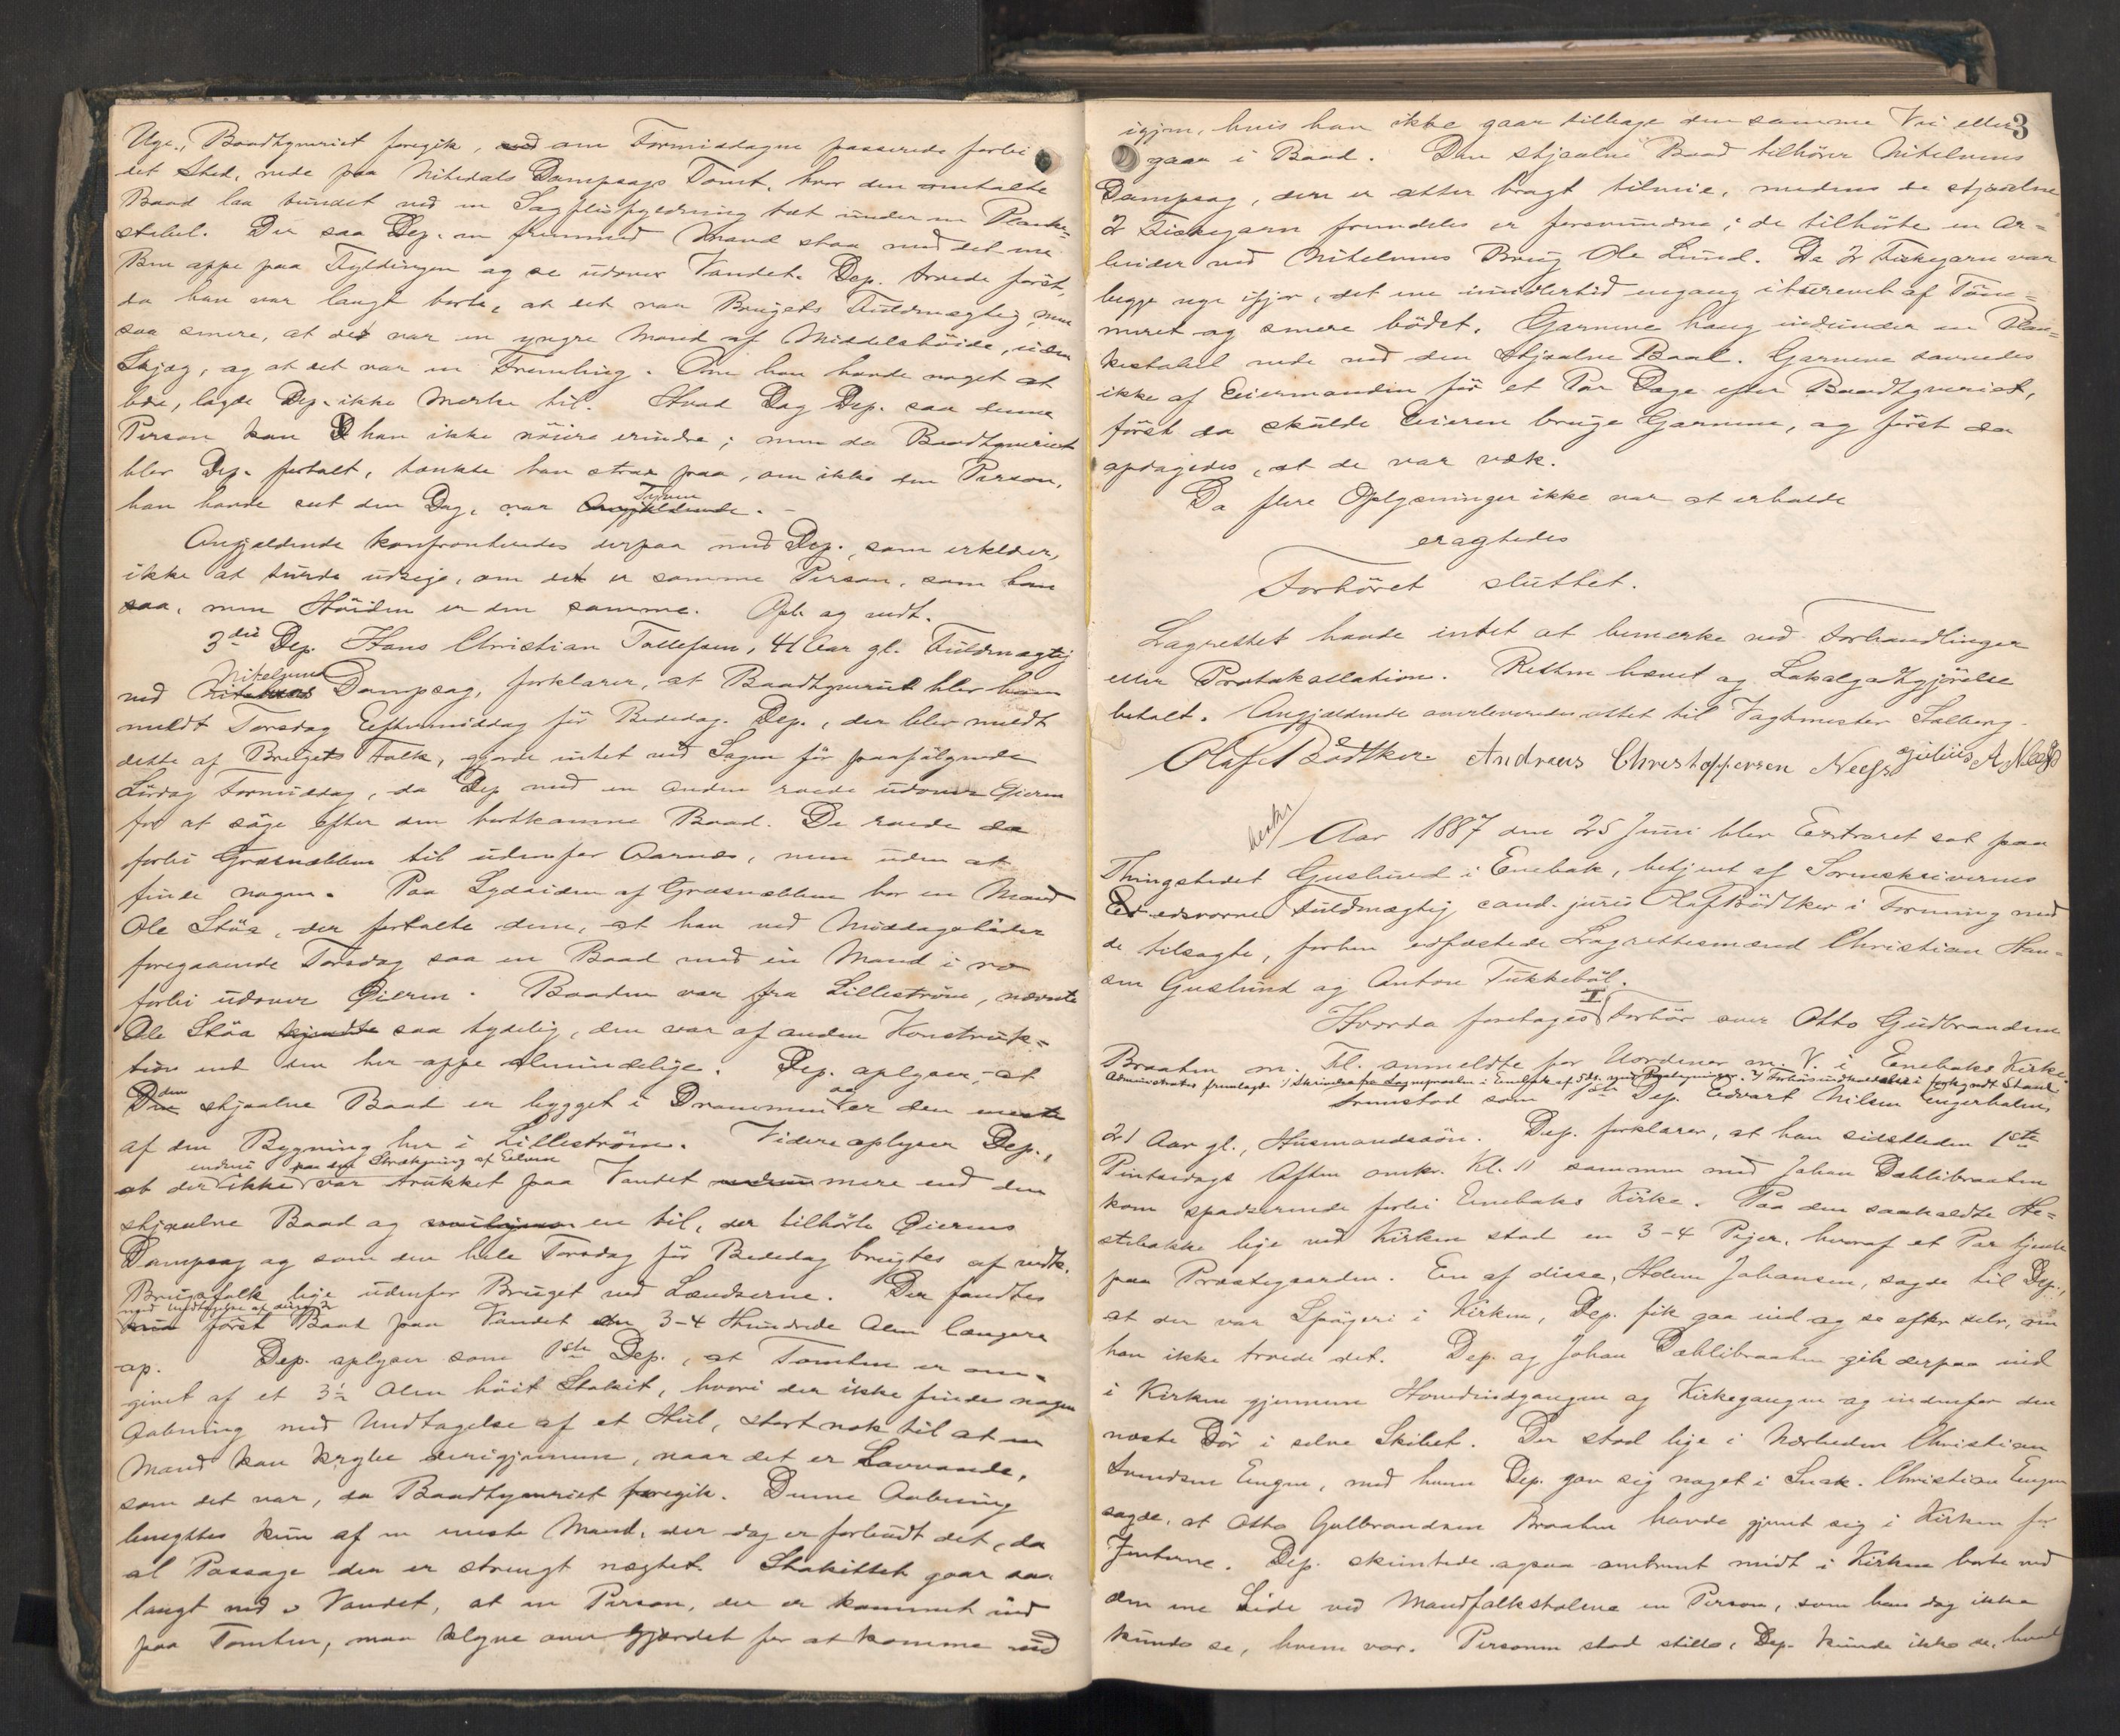 Uge, Baadtyveriet foregik, om Formiddagen passerede forbi
det Sted, nede paa Nitedals Dampsags Tomt, hvor den omtalte
Baad laa bundet ved en Sagflisfyldning tæt under en Planke-
stabel. Der saa Dep. en fremmed Mand staa med det ene
Ben oppe paa Fyldingen og se udover Vandet. Dep. troede først,
da han var langt borte, at det var Brugets Fuldmægtig, men
saa senere, at det var en yngre Mand af Middelshøide, uden
Skjæg, og at det var en Fremling. Om han havde noget at
bære, lagde Dep. ikke Mærke til. Hvad Dag Dep. saa denne
Person kan han ikke nøiere erindre; men da Baadtyveriet
blev Dep. fortalt, tænkte han strax paa, om ikke den Person,
han havde seet den Dag, var Tyven.
Angjældende konfronteredes derpaa med Dep., som erklærer,
ikke at turde udsige, om det er samme Person, som han
saa, men Høiden er den samme. Opl. og vedt.
3die Dep. Hans Christian Tollefsen, 41 Aar gl. Fuldmægtig
ved Nitelvens Dampsag, forklarer, at Baadtyveriet blev ham
meldt Torsdag Eftermiddag før Bededag. Dep., der blev meldt
dette af Brugets Folk, gjorde intet ved Sagen før paafølgende
Lørdag Formiddag, da Dep. med en anden roede udover Øieren
for at søge efter den bortkomne Baad. De roede da
forbi Græsnæbben til udenfor Aarnes, men uden at
finde nogen. Paa Sydsiden af Græsnæbben bor en Mand
Ole Støa, der fortalte dem, at han ved Middagstider
foregaaende Torsdag saa en Baad med en Mand i ro
forbi udover Øieren. Baaden var fra Lillestrøm, nævnte
Ole Støa saa tydelig, den var af anden Konstruk-
tion end den her oppe almindelige. Dep. oplyser, at
den stjaalne Baad er bygget i Drammen og er den eneste
af den Bygning her i Lillestrøm. Videre oplyser Dep.,
at der endnu ikke paa den Strækning af Elven var trukket paa Vandet mere end den
stjaalne Baad og en til, der tilhørte Øierens
Dampsag og som den hele Torsdag før Bededag brugtes af vedk.
Brugsfolk lige udenfor Bruget ved Lændserne. Der fandtes
med Undtagelse af denne
først Baad paa Vandet 3-4 Hundrede Alen længere
op. Dep. oplyser som 1ste Dep., at Tomten er om-
givet af et 3½ Alen høit Stakit, hvori der ikke findes nogen
Aabning med Undtagelse af et Hul, stort nok til at en
Mand kan krybe derigjennem, naar det er Lavvande,
som det var, da Baadtyveriet foregik. Denne Aabning
benyttes kun af en eneste Mand, der dog er forbudt det, da
al Passage der er strengt nægtet. Stakittet gaar saa
langt ned i Vandet, at en Person, der er kommet ind
paa Tomten, maa klyve over Gjærdet for at komme ud
3
igjen, hvis han ikke gaar tilbage den samme Vei eller
gaar i Baad. Den stjaalne Baad tilhører Nitelvens
Dampsag, den er atter bragt tilveie, medens de stjaalne
2 Fiskegarn fremdeles er forsvundne; de tilhørte en Ar-
beider ved Nitelvens Brug Ole Lund. De 2 Fiskegarn var
begge nye ifjor, det ene imidlertid engang itureevet af Tøm-
meret og senere bødet. Garnene hang indunder en Plan-
kestabel nede ved den stjaalne Baad. Garnene savnedes
ikke af Eiermanden før et Par Dage efter Baadtyveriet,
først da skulde Eieren bruge Garnene, og først da
opdagedes, at de var væk.
Da flere Oplysninger ikke var at erholde
eragtedes
Forhøret sluttet.
Lagrettet havde intet at bemerke ved Forhandlinger
eller Protokollation. Retten hævet og Lokalgodtgjørelse
betalt. Angjældende overleveredes attet til Vagtmester Solberg.
Olaf Bødtker Andreas Christoffersen Næss Julius A. Næss
Aar 1887 den 25 Juni blev Extraret sat paa
Thingstedet Guslund i Enebak, betjent af Sorenskriverens
edsvorne Fuldmægtig cand. juris Olaf Bødtker i Forening med
de tilsagte, forhen edfæstede Lagrettesmænd Christian Han-
sen Guslund og Anton Tukkebøl.
I
Hvorda foretoges Forhør over Otto Gudbrandsen
Braaten m. Fl. anmeldte for Uordener m. V. i Enebaks Kirke.
Administrator fremlagde 1) Skrivelse fra Sogneprester i Enebak af 5ds. med Paategninger. 2) Forhørsindkaldelse i forkyndt Stand.
Fremstod som 1ste Dep. Edvart Nilsen Ungerholm,
21 Aar gl., Husmandssøn. Dep. forklarer, at han sidstleden 1ste
Pintsedags Aften omkr. Kl. 11 sammen med Johan Dahlibraaten
kom spadserende forbi Enebaks Kirke. Paa den saakaldte He-
stebakke lige ved Kirken stod en 3-4 Piger, hvoraf et Par tjente
paa Præstegaarden. En af disse, Helene Johansen, sagde til Dep.,
at der var Spøgeri i Kirken, Dep. fik gaa ind og se efter selv, om
han ikke troede det. Dep. og Johan Dahlibraaten gik derpaa ind
i Kirken gjennem Hovedindgangen og Kirkegangen og indenfor den
næste Dør i selve Skibet. Der stod lige i Nærheden Christian
Svendsen Engen, med hvem Dep. gav sig noget i Snak. Christian Engen
sagde, at Otto Gulbrandsen Braaten havde gjemt sig i Kirken for
Jenterne. Dep. skimtede ogsaa omtrent midt i Kirken borte ved
den ene Side ved Mandfolkstolene en Person, som han dog ikke
kunde se, hvem var. Personen stod stille, Dep. kunde ikke se, hvad